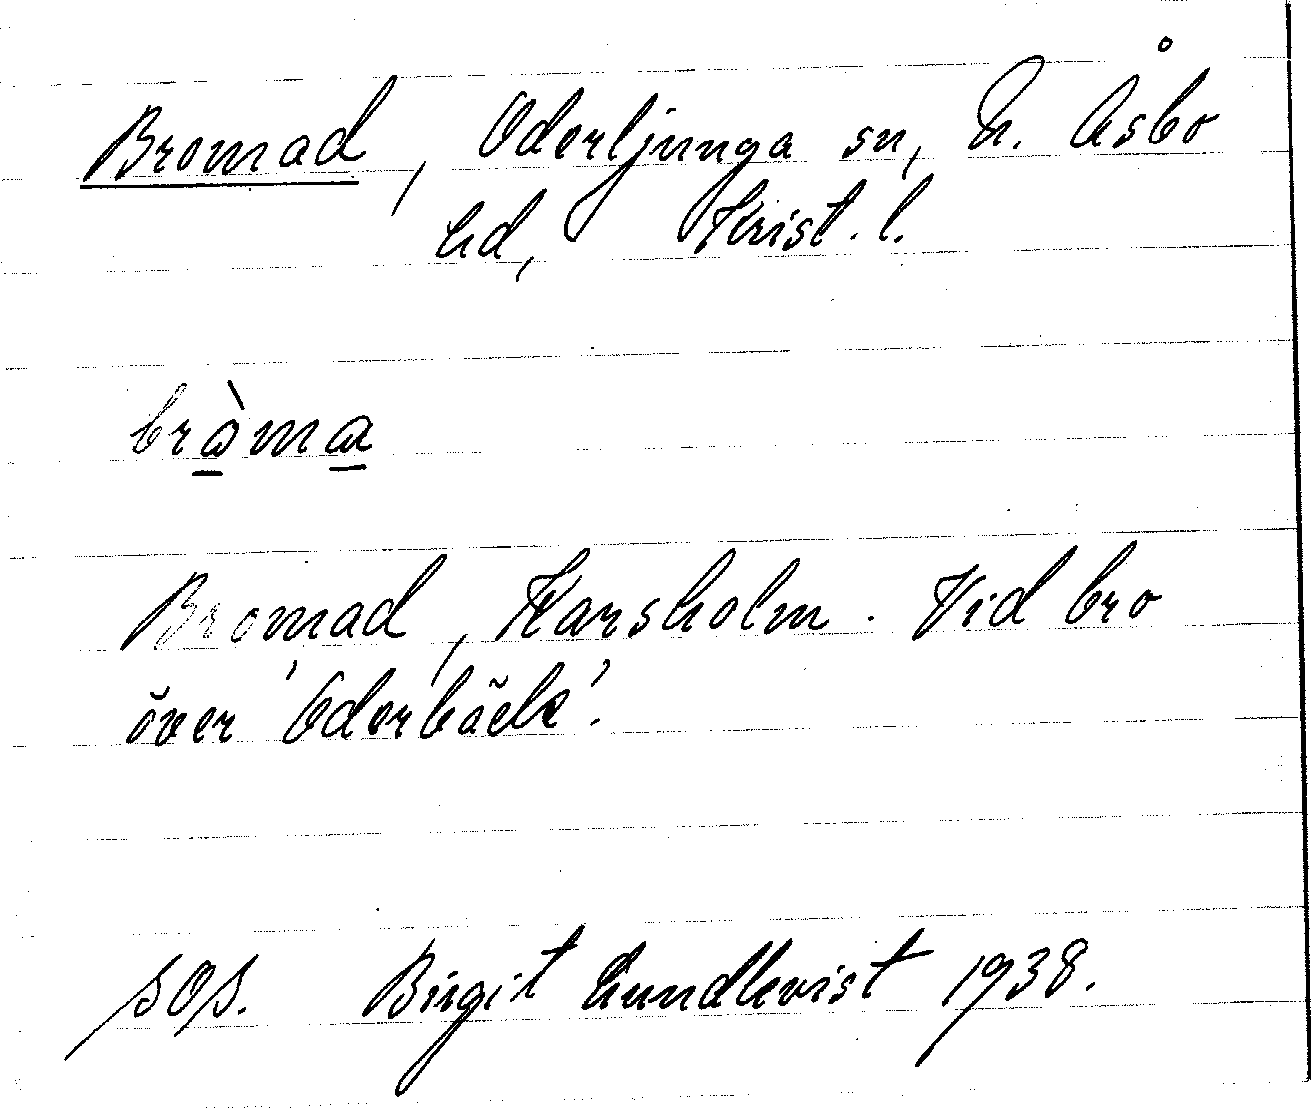 Bromad, Oderljunga sn, N. Åsbo
hd, Krist. l.
bràma
Bromad, Karsholm. Vid bro
över 'Oderbäck'.
SOS. Birgit Lundkvist 1938.